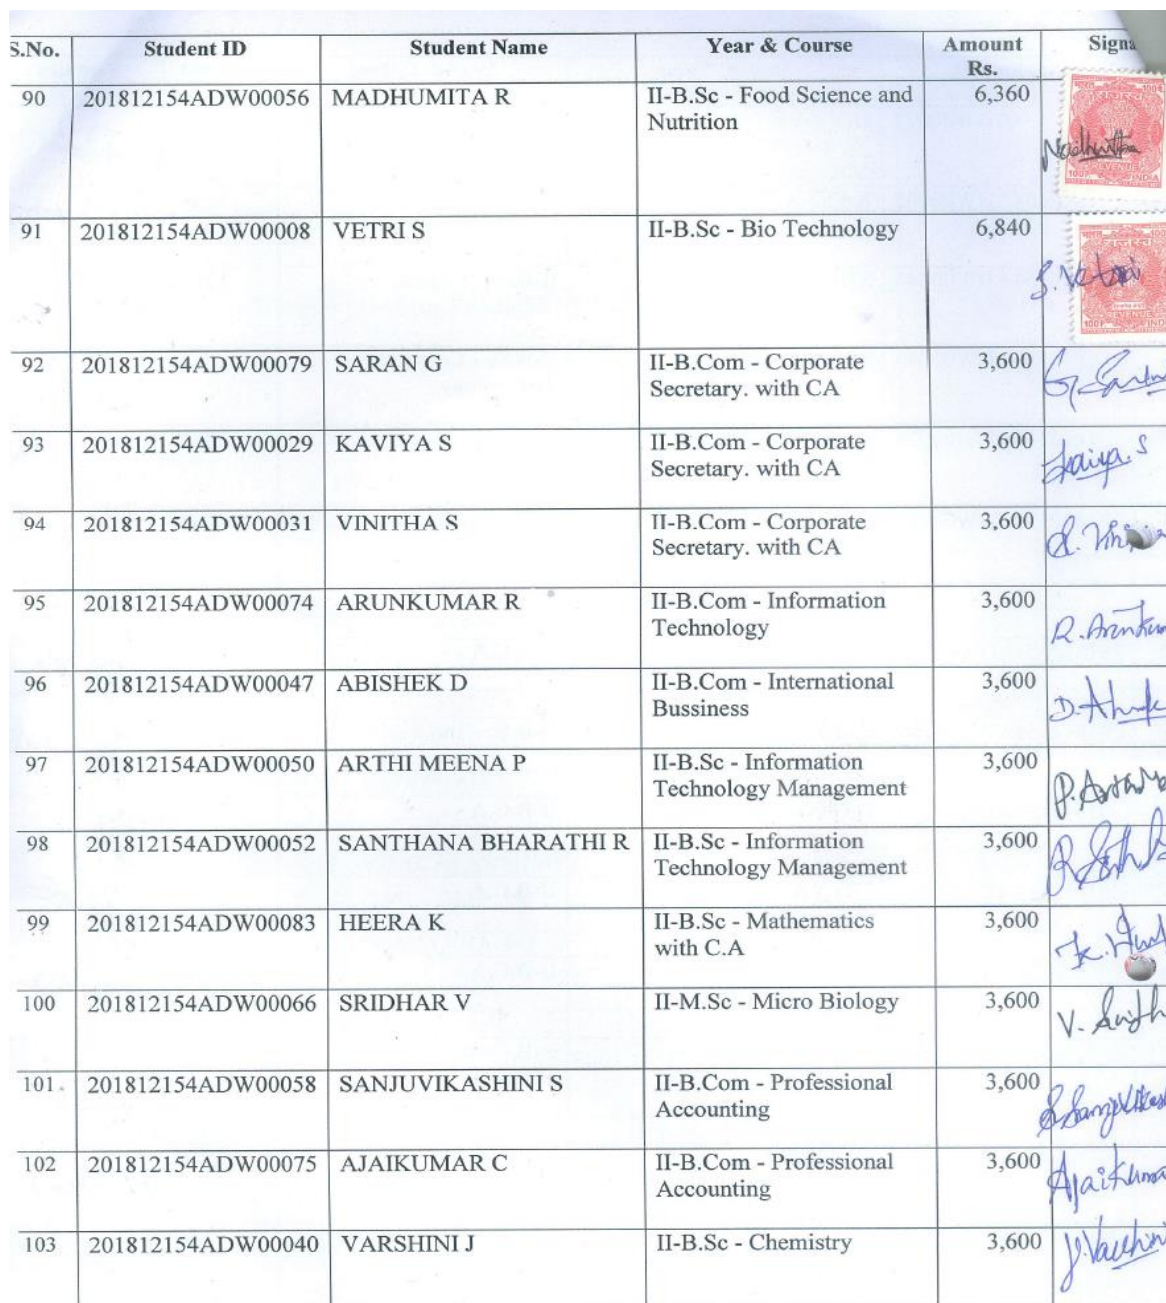 S.No. Student ID Student Name Year & Course Amount Signa
Rs.
90 201812154ADW00056 MADHUMITA R II-B.Sc - Food Science and 6,360
Nutrition
91 201812154ADW00008 VETRI S II-B.Sc - Bio Technology 6,840
S. Vetri
92 201812154ADW00079 SARAN G II-B.Com - Corporate 3,600
Secretary. with CA
93 201812154ADW00029 KAVIYA S II-B.Com - Corporate 3,600
Secretary. with CA Kaviya. S
94 201812154ADW00031 VINITHA S II-B.Com - Corporate 3,600
Secretary. with CA
95 201812154ADW00074 ARUNKUMAR R II-B.Com - Information 3,600
Technology R. Arunkum
96 201812154ADW00047 ABISHEK D II-B.Com - International 3,600
Bussiness
97 201812154ADW00050 ARTHI MEENA P II-B.Sc - Information 3,600
Technology Management
98 201812154ADW00052 SANTHANA BHARATHI R II-B.Sc - Information 3,600
Technology Management
99 201812154ADW00083 HEERA K II-B.Sc - Mathematics 3,600
with C.A
100 201812154ADW00066 SRIDHAR V II-M.Sc - Micro Biology 3,600
101 201812154ADW00058 SANJUVIKASHINI S II-B.Com - Professional 3,600
Accounting
102 201812154ADW00075 AJAIKUMAR C II-B.Com - Professional 3,600
Accounting Ajaikuma
103 201812154ADW00040 VARSHINI J II-B.Sc - Chemistry 3,600